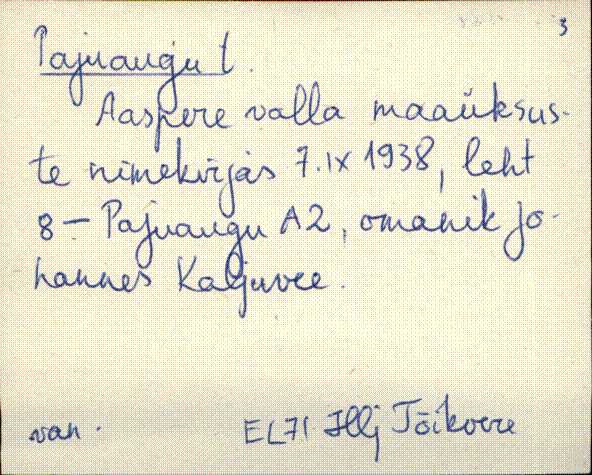 3
Pajuaugu t.
Aaspere valla maaüksus-
te nimekirjas 7.IX 1938, leht
8 - Pajuaugu A2, omanik Jo-
hannes Kaljuvee.
van. EL71 Hlj Tõikvere